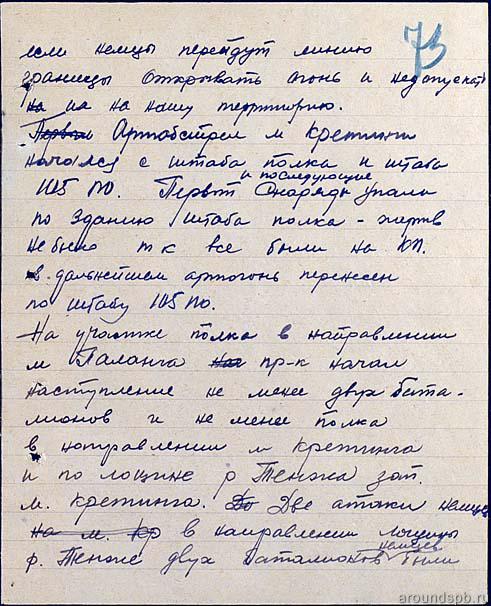 73
если немцы перейдут линию
границы открывать огонь и не допускать
на их на нашу территорию.
Первы Артобстрел м Кретинги
начался с штаба полка и штаба
и последующие
105 ПО. Первые Снаряды упали
по зданию штаба полка - жертв
не было т к все были на КП.
в дальнейшем артогонь перенесен
по штабу 105 ПО.
На участке полка в направлении
м Паланга на пр-к начал
наступление не менее двух бата-
лионов и не менее полка
в направлении м Кретинга
и по лощине р Тенжа зап.
м. Кретинга. До Две атаки немцев
на м. Кр в направлении лощины
немцев
р. Тенже двух баталионов были
aroundspb.ru